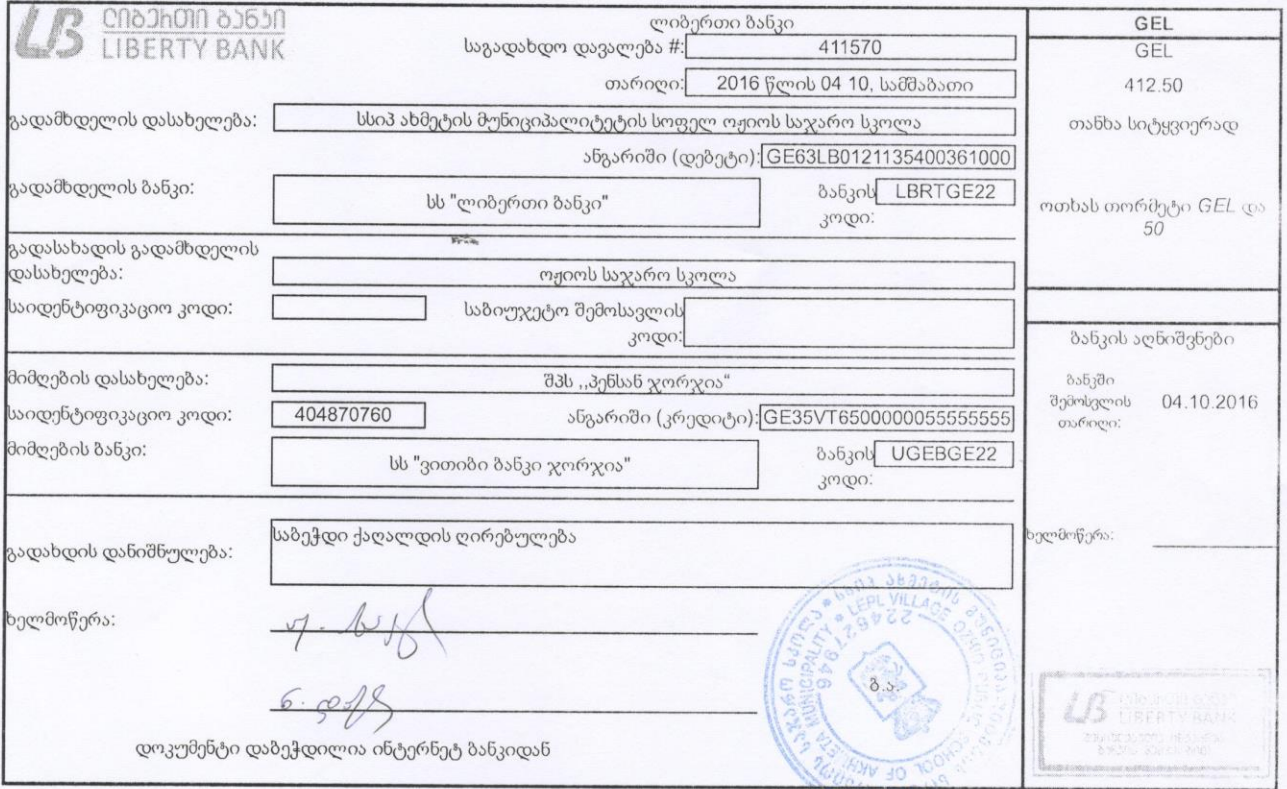 ᲚᲘᲑᲔᲠᲗᲘ ᲑᲐᲜᲙᲘ
LIBERTY BANK
ლიბერთი ბანკი
საგადახდო დავალება #: 411570
თარიღი: 2016 წლის 04 10, სამშაბათი
გადამხდელის დასახელება: სსიპ ახმეტის მუნიციპალიტეტის სოფელ ოჟიოს საჯარო სკოლა
ანგარიში (დებეტი): GE63LB0121135400361000
გადამხდელის ბანკი: სს "ლიბერთი ბანკი" ბანკის კოდი: LBRTGE22
გადასახადის გადამხდელის
დასახელება: ოჟიოს საჯარო სკოლა
საიდენტიფიკაციო კოდი: საბიუჯეტო შემოსავლის
კოდი:
მიმღების დასახელება: შპს ,,პენსან ჯორჯია“
საიდენტიფიკაციო კოდი: 404870760 ანგარიში (კრედიტი): GE35VT6500000055555555
მიმღების ბანკი: სს "ვითიბი ბანკი ჯორჯია" ბანკის კოდი: UGEBGE22
გადახდის დანიშნულება: საბეჭდი ქაღალდის ღირებულება
ხელმოწერა:
ბ.ა.
დოკუმენტი დაბეჭდილია ინტერნეტ ბანკიდან
GEL
GEL
412.50
თანხა სიტყვიერად
ოთხას თორმეტი GEL და
50
ბანკის აღნიშვნები
ბანკში
შემოსვლის 04.10.2016
თარიღი:
ხელმოწერა:
LEPL VILLAGE OZHIO PUBLIC SCHOOL OF AKHMETA MUNICIPALITY
224627946
LIBERTY BANK